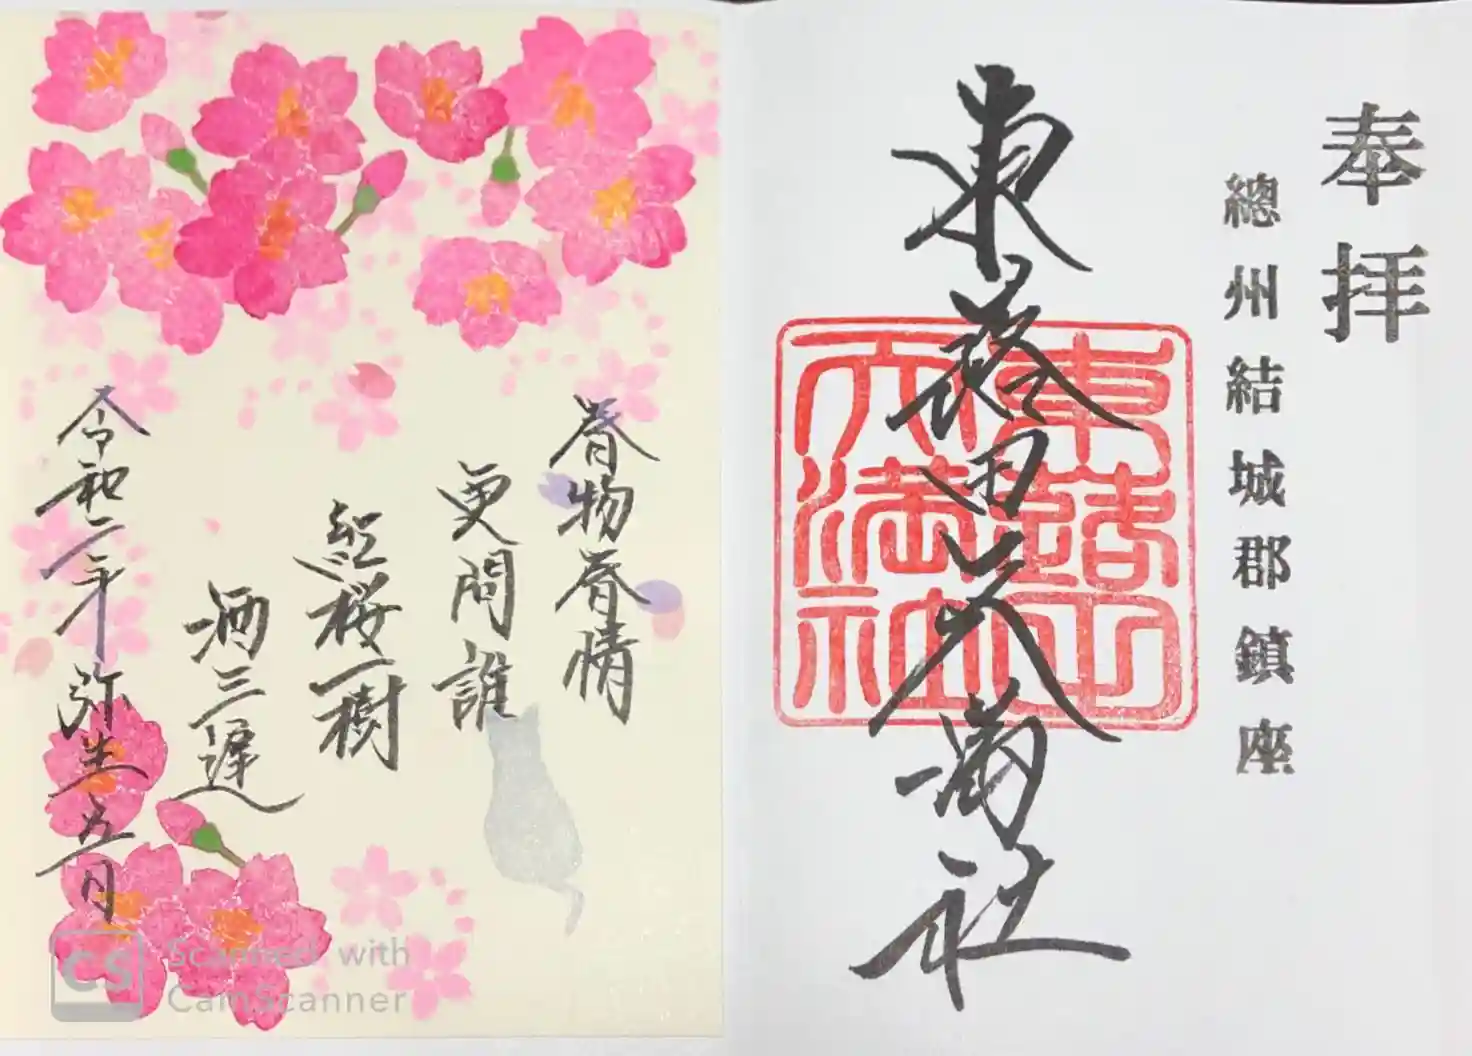 奉拝
總州結城郡鎮座
東蕗田天満社
東蕗田
天満社
春物春情
更問誰
紅桜一樹
酒三遅
令和二年弥生五日
CS
Scanned with
CamScanner